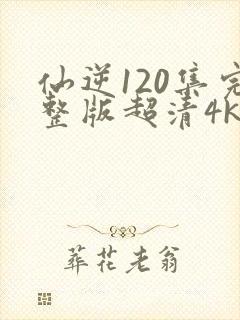 仙逆120集完
整版超清4K
葬花老翁